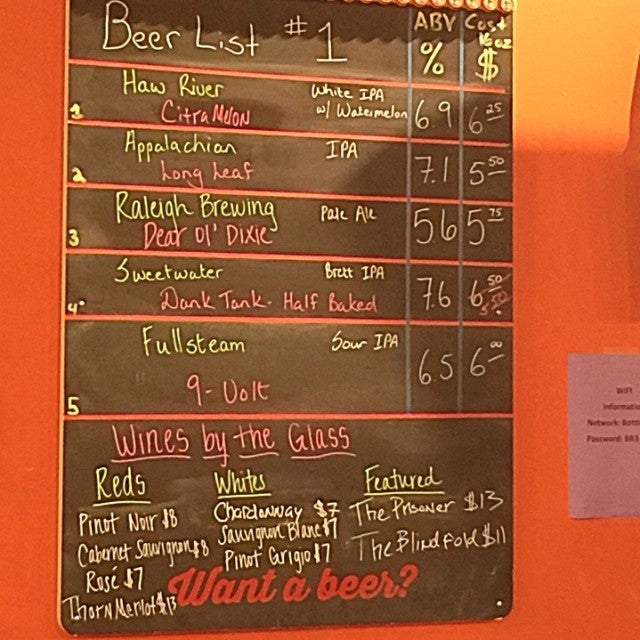 Beer List #1 ABV Cost
16 oz
% $
Haw River White IPA
1 Citra Melon w/ Watermelon 6.9 6.25
Appalachian IPA
2 Long Leaf 7.1 5.50
Raleigh Brewing Pale Ale
3 Dear Ol' Dixie 5.6 5.75
Sweetwater Brett IPA
4. Dank Tank - Half Baked 7.6 6.50
5.50
Fullsteam Sour IPA
9-Volt 6.5 6.00
5
Wines by the Glass
Reds
Pinot Noir $8
Cabernet Sauvignon $8
Rosé $7
Thorn Merlot $13
Whites
Chardonnay $7
Sauvignon Blanc $7
Pinot Grigio $7
Featured
The Prisoner $13
The Blindfold $11
Want a beer?
WIFI
Informatio
Network: Bottl
Password: BR3